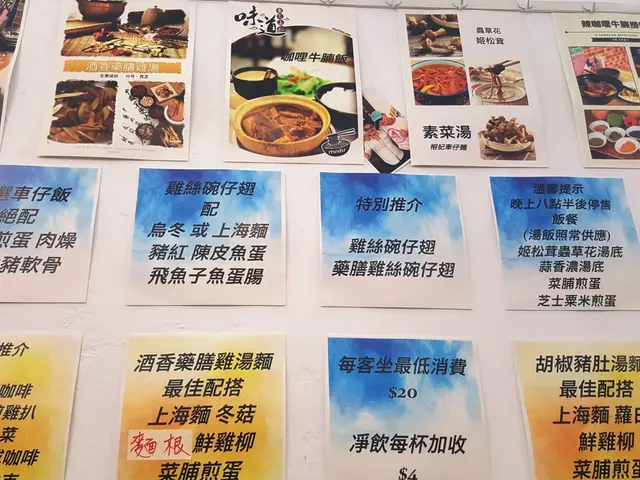 酒香藥膳雞湯
味之道
咖喱牛腩飯
蟲草花
姬松茸
素菜湯
榕記車仔麵
辣咖喱牛腩撈
選車仔飯
絕配
煎蛋 肉燥
豬軟骨
雞絲碗仔翅
配
烏冬 或 上海麵
豬紅 陳皮魚蛋
飛魚子魚蛋腸
特別推介
雞絲碗仔翅
藥膳雞絲碗仔翅
溫馨提示
晚上八點半後停售
飯餐
(湯飯照常供應)
姬松茸蟲草花湯底
蒜香濃湯底
菜脯煎蛋
芝士粟米煎蛋
推介
咖啡
雞扒
菜
咖啡
酒香藥膳雞湯麵
最佳配搭
上海麵 冬菇
麵根 鮮雞柳
菜脯煎蛋
每客坐最低消費
$20
凈飲每杯加收
$4
胡椒豬肚湯麵
最佳配搭
上海麵 蘿
鮮雞柳
菜脯煎蛋